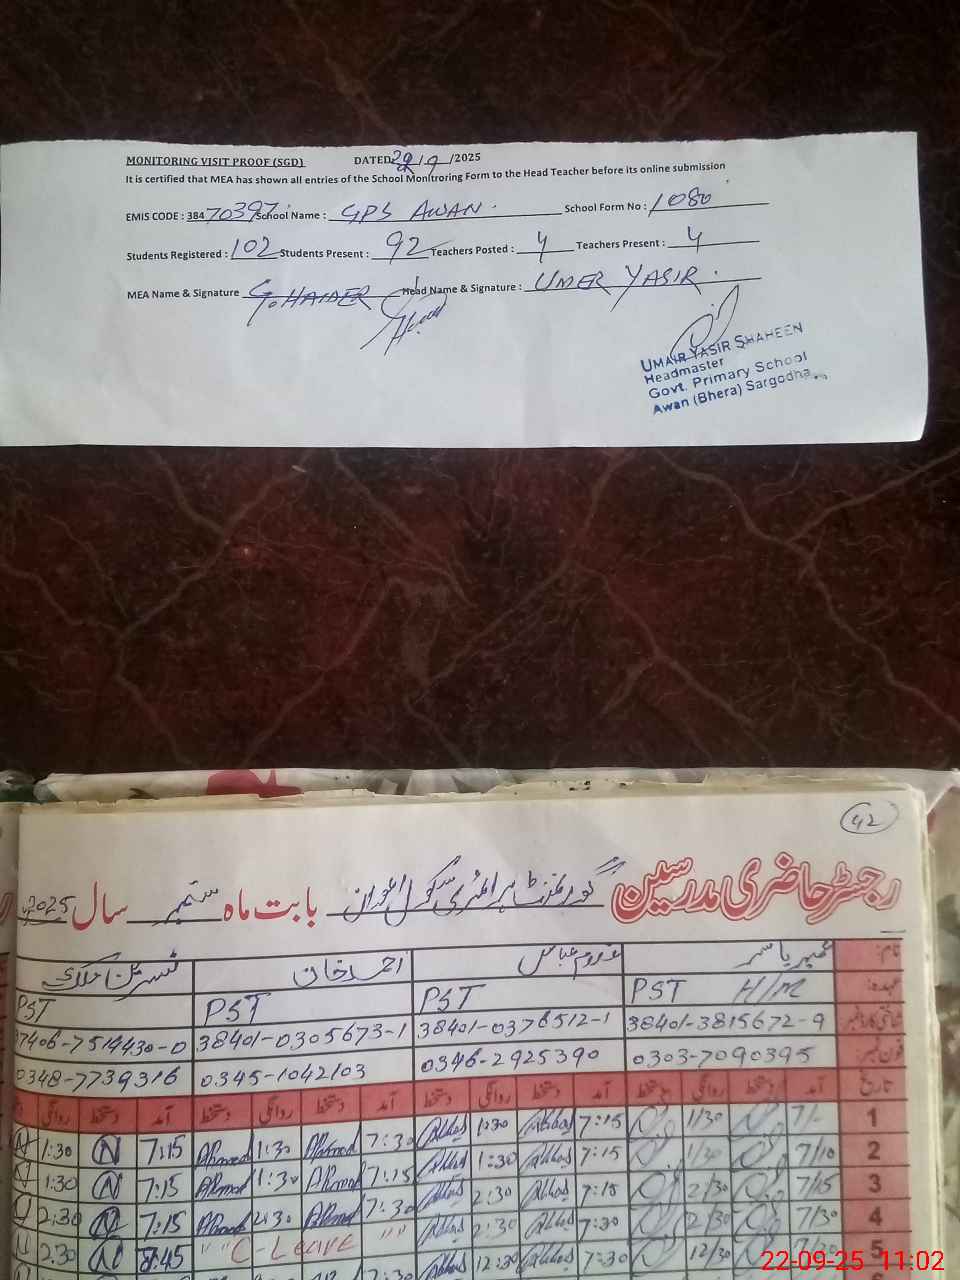 MONITORING VISIT PROOF (SGD) DATED 22/9/2025
It is certified that MEA has shown all entries of the School Monitroring Form to the Head Teacher before its online submission
EMIS CODE : 384 70397 School Name : GPS AWAN. School Form No : 1080
Students Registered : 102 Students Present : 92 Teachers Posted : 4 Teachers Present : 4
MEA Name & Signature G. HAIDER Head Name & Signature : UMER YASIR.
UMAIR YASIR SHAHEEN
Headmaster
Govt. Primary School
Awan (Bhera) Sargodha
42
رجسٹر حاضری مدرسین گورنمنٹ پرائمری سکول اعوان بابت ماہ ستمبر سال 2025
نام: عمیر یاسر عباس احمد خان
عہدہ: PST H/M PST PST PST
شناختی کارڈ نمبر: 38401-3815672-9 38401-0376512-1 38401-0305673-1 37406-7514430-0
فون نمبر: 0303-7090395 0346-2925390 0345-1042103 0348-7739316
تاریخ آمد دستخط روانگی دستخط آمد دستخط روانگی دستخط آمد دستخط روانگی دستخط آمد دستخط روانگی
1 1/30 7:15 Abbas 1:30 Abbas 7:30 Ahmad 1:30 Ahmad 7:15 N 1:30 N
2 7/10 1/30 7:15 Abbas 1:30 Abbas 7:15 Ahmad 1:30 Ahmad 7:15 N 1:30
3 7/15 2/30 7:15 Abbas 2:30 Abbas 7:30 Ahmad 2:30 Ahmad 7:15 N 2:30
4 7/30 2/30 7:30 Abbas 2:30 Abbas C-Leave 8:45 N 2:30 N
5 12/30 7:30 Abbas 12:30 Abbas
22-09-25 11:02